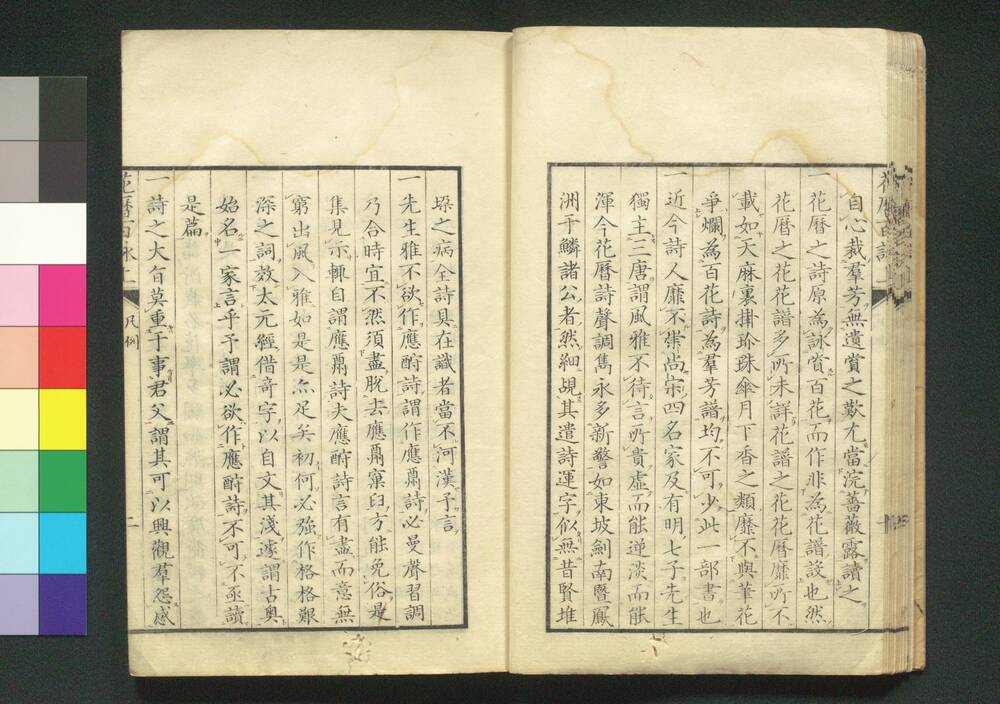 自心裁羣芳無遺賞之歎尤當浣薔薇露讀之
一花曆之詩原為詠賞百花而作非為花譜設也然
花曆之花花譜多所未詳花譜之花花曆靡所不
載如天麻裏掛珍珠傘月下香之類靡不與華花
爭爛為百花詩為羣芳譜均不可少此一部書也
一近今詩人靡不崇尚宋四名家及有明七子先生
獨主三唐謂風雅不待言所貴虛而能逆淡而能
渾今花曆詩聲調雋永多新警如東坡劍南暨鳳
洲于鱗諸公者然細覘其遣詩運字似無昔賢堆
垜之病全詩具在識者當不河漢予言
一先生雅不欲作應酧詩謂作應酧詩必曼聲習調
乃合時宜不然須盡脫去應酧窠臼方能免俗最
集見示輒自謂應酧詩夫應酧詩言有盡而意無
窮出風入雅如是是亦足矣初何必強作格格艱
深之詞效太元經借奇字以自文其淺遽謂古奧
始名一家言乎予謂必欲作應酧詩不可不亟讀
是篇
一詩之大旨莫重于事君父謂其可以興觀羣怨感
花曆百詠 凡例 二